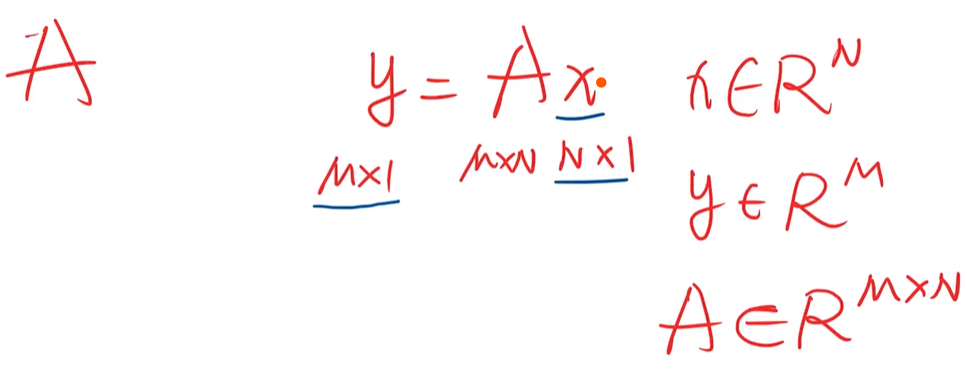 A
y = Ax
M×1 M×N N×1
x∈R^N
y∈R^M
A∈R^{M×N}